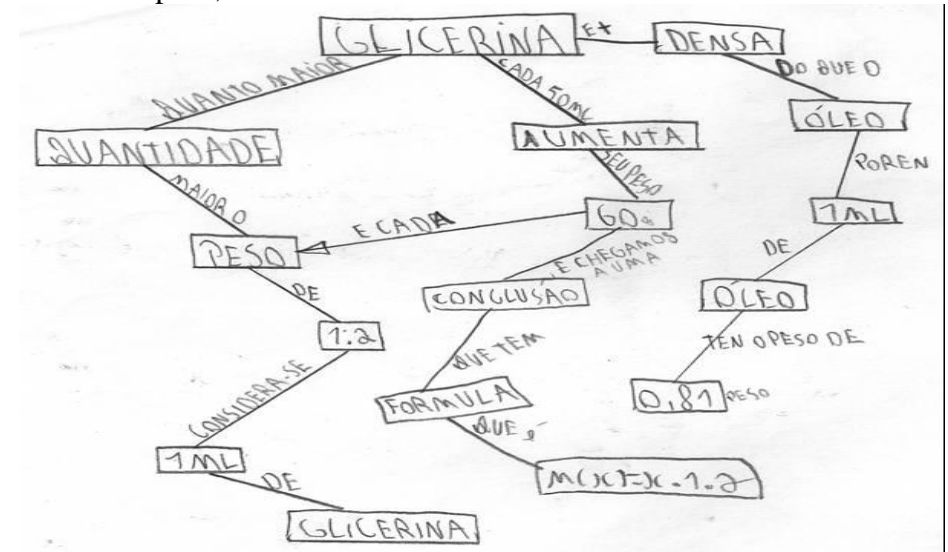 GLICERINA
E +
DENSA
DO QUE O
ÓLEO
POREN
1 ML
DE
OLEO
TEN O PESO DE
0,81 PESO
QUANTO MAIOR
QUANTIDADE
MAIOR O
PESO
DE
1.2
CONSIDERA-SE
1 ML
DE
GLICERINA
CADA 50 ML
AUMENTA
SEU PESO
60g
E CADA
E CHEGAMOS
A UMA
CONCLUSÃO
QUE TEM
FORMULA
QUE é
M(x)=x.1.2